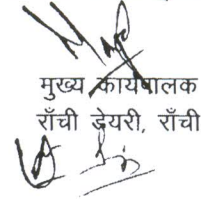 मुख्य कार्यपालक
राँची डेयरी, राँची